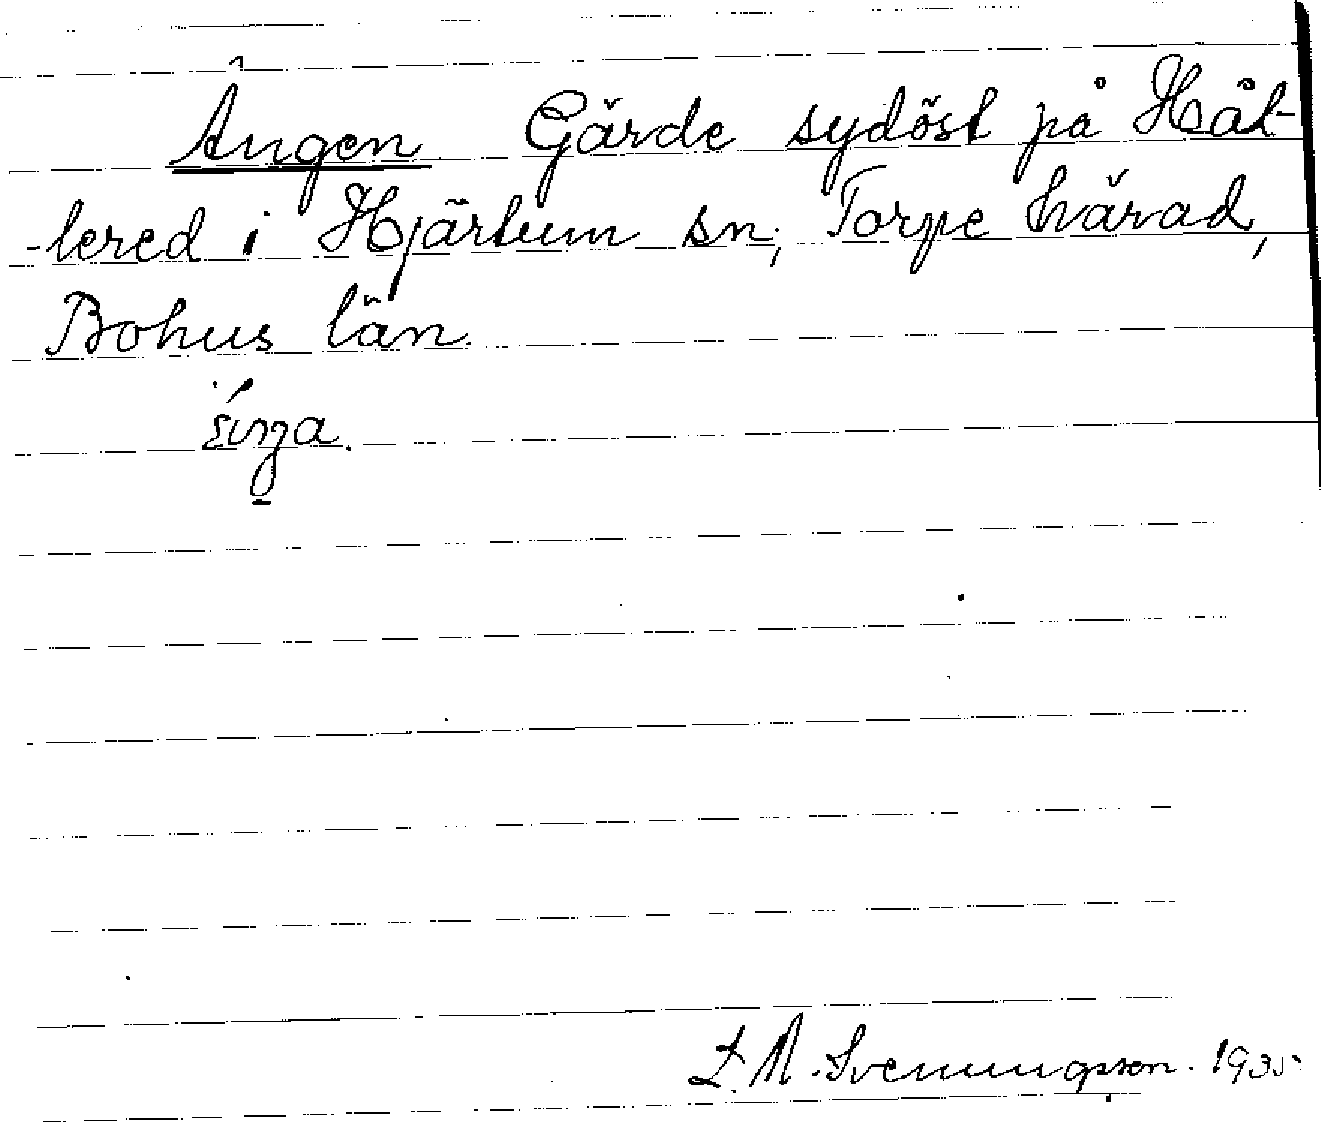 Ängen Gärde sydöst på Hät-
-lered i Hjärtum sn, Torpe härad,
Bohus län.
L. M. Svenungsson. 1935